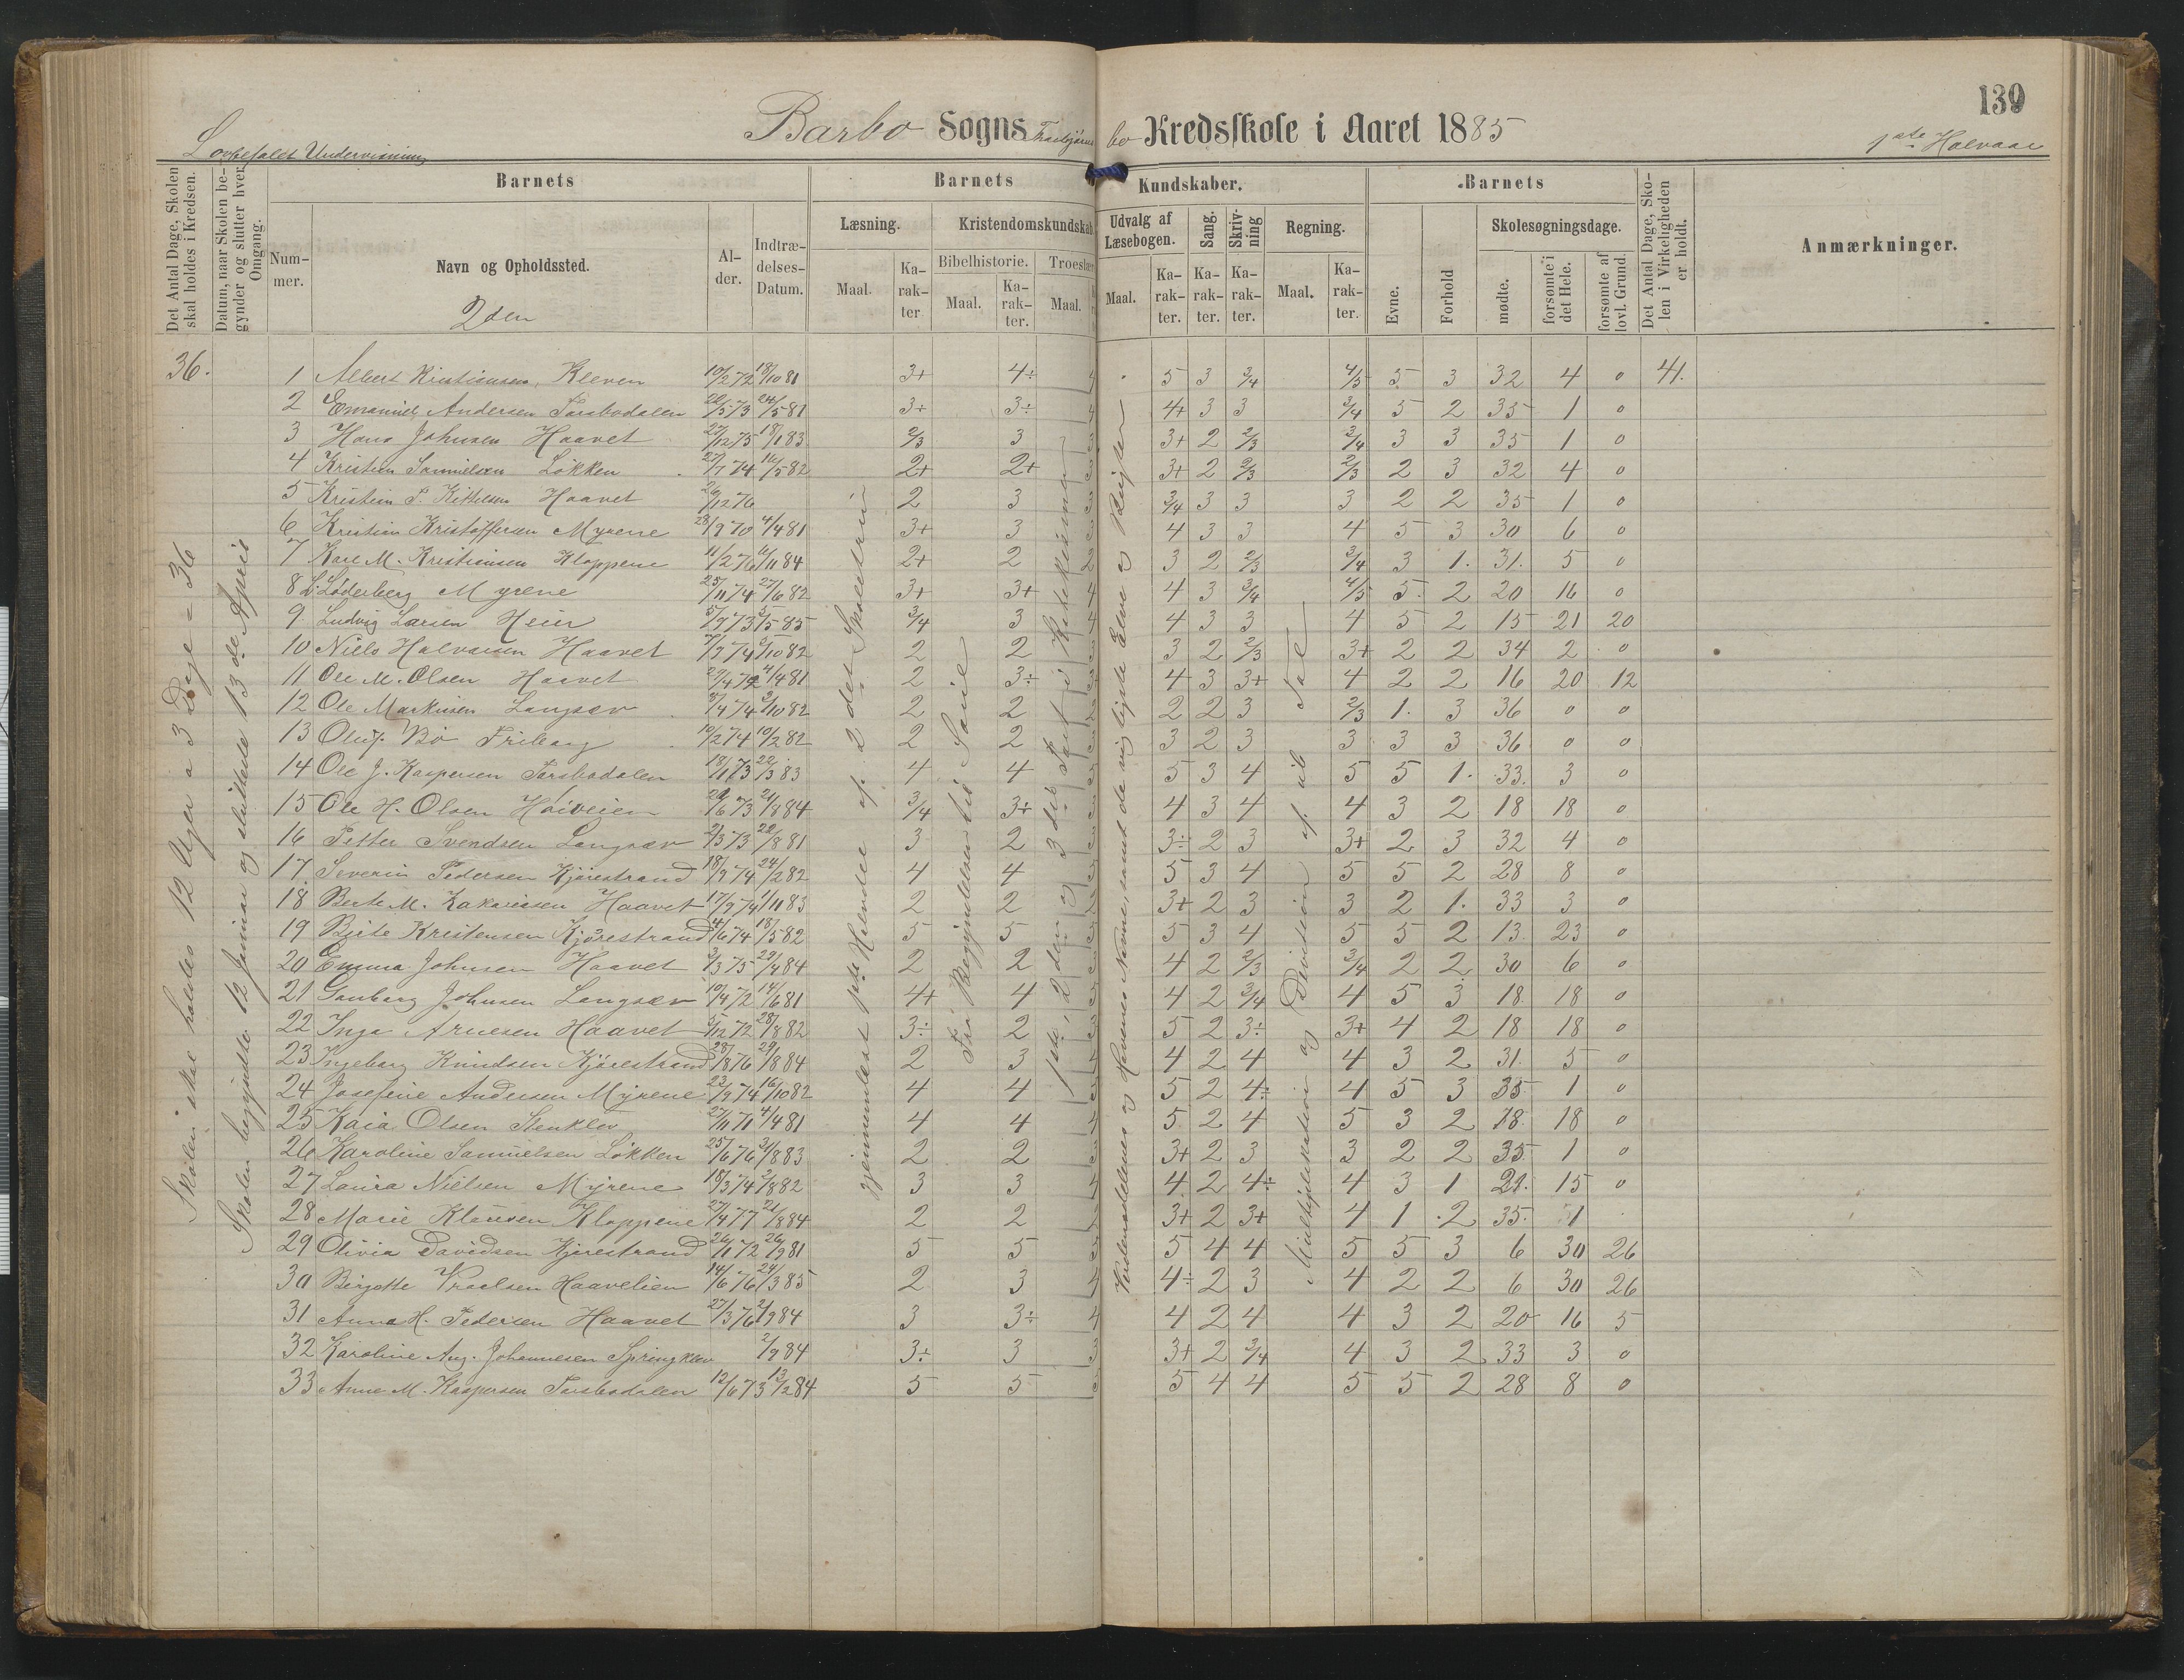 139
Barbo Sogns Kredsskole i Aaret 1885
Lovbefalet Undervisning
1ste Halvaar
Det Antal Dage, Skolen skal holdes i Kredsen.
Datum, naar Skolen begynder og slutter hver Omgang.
Barnets
Barnets
Kundskaber.
Barnets
Det Antal Dage, Skolen i Virkeligheden er holdt.
Anmærkninger.
Nummer.
Navn og Opholdssted.
Alder.
Indtrædelses-Datum.
Læsning.
Kristendomskundskab
Udvalg af Læsebogen.
Sang.
Skrivning
Regning.
Evne.
Forhold
Skolesøgningsdage.
Maal.
Karakter
Bibelhistorie.
Troeslære
Maal.
Karakter.
Maal.
Maal.
Karakter.
Karakter.
Karakter.
Maal.
Karakter.
mødte.
forsømte i det Hele.
forsømte af lovl. Grund.
2den
36.
Skolen skal holdes 12 Uger a 3 Dage = 36
Skolen begyndte 12 Januar og sluttede 13de April
gjennemlæst
af 2det Skoletrin
Fra Begyndelsen til
1ste, 2den og 3die Part i Katekismus
Multiplikation og Division af
1 Albert Kristiansen, Kleven 10/2 72 18/10 81 3+ 4÷ 4 5 3 3/4 4/5 5 3 32 4 0 41.
2 Emanuel Andersen Torsbudalen 22/5 73 24/5 81 3÷ 3÷ 4 4+ 3 3 3/4 5 2 35 1 0
3 Hans Johnsen Haavet 27/12 75 18/1 83 2/3 3 3 3+ 2 2/3 3/4 3 3 35 1 0
4 Kristen Samuelsen Løkken 27/7 74 16/5 82 2+ 2+ 3 3+ 2 2/3 2/3 2 3 32 4 0
5 Kristein P. Kittelsen Haavet 26/12 76 2 3 3 3/4 3 3 3 2 2 35 1 0
6 Kristian Kristoffersen Myrene 28/9 70 4/4 81 3+ 3 3 4 3 3 4 5 3 30 6 0
7 Karl M. Kristiansen Kloppene 11/2 76 6/11 84 2+ 2 2 3 2 2/3 3/4 3 1. 31. 5 0
8 L. Söderberg Myrene 25/11 74 27/6 82 3+ 3+ 4 4 3 3/4 4/5 5. 2 20 16 0
9 Ludvig Larsen Heier 5/9 73 5/5 85 3/4 3 4 4 3 3 4 5 2 15 21 20
10 Niels Halvorsen Haavet 7/7 74 5/10 82 2 2 3 3 2 2/3 3+ 2 2 34 2 0
11 Ole M. Olsen Haavet 29/4 72 4/4 81 2 3÷ 3 4 3 3+ 4 2 2 16 20 12
12 Ole Markusen Langsæv 8/4 74 2/10 82 2 2 2 2 3 2/3 1. 3 36 0 0
13 Oluf Bö Friberg 10/2 74 10/2 82 2 2 3 2 3 3 3 3 36 0 0
14 Ole J. Kaspersen Torsbudalen 18/11 73 22/3 83 4 4 5 3 4 5 5 1. 33. 3 0
15 Ole H. Olsen Höiveien 22/6 73 21/8 84 3/4 3+ 4 3 4 4 3 2 18 18 0
16 Petter Svendsen Langsæv 2/3 73 22/8 81 3 2 3÷ 2 3 3+ 2 3 32 4 0
17. Severin Pedersen Kjörestrand 18/9 74 24/2 82 4 4 5 3 4 5 5 2 28 8 0
18. Berte M. Zakariasen Haavet 17/9 74 1/11 83 2 2 3+ 2 3 3 2 1. 33 3 0
19 Berte Kristensen Kjörestrand 4/6 74 18/5 82 5 5 5 3 4 5 5 2 13 23 0
20 Emma Johnsen Haavet 2/3 75 29/4 84 2 2 4 2 2/3 3/4 2 2 30 6 0
21 Gunborg Johnsen Langsæv 10/4 72 14/6 81 4+ 4 4 2 3/4 4 5 3 18 18 0
22 Inga Arnesen Haavet 5/12 72 28/8 82 3÷ 2 5 2 3÷ 3+ 4 2 18 18 0
23 Ingeborg Knudsen Kjörestrand 28/8 76 29/8 84 2 3 4 2 4 4 3 2 31. 5 0
24 Josefine Andersen Myrene 23/9 74 16/10 82 4 4 5 2 4÷ 4 5 3 35 1 0
25 Kaia Olsen Stenklev 27/11 71 4/4 81 4 4 4 5 2 4 5 3 2 18. 18 0
26 Karoline Samuelsen Løkken 25/6 76 31/8 83 2 2 3 3+ 2 3 3 2 2 35 1 0
27 Laura Nielsen Myrene 18/3 74 2/8 82 3 3 4 4 2 4÷ 4 3 1 21. 15 0
28 Marie Klausen Kloppene 27/4 77 21/8 84 2 2 2 3+ 2 3+ 4 1 2 35. 1
29 Olivia Davidsen Kjörestrand 26/11 72 26/9 81 5 5 5 4 4 5 5 3 6 30 26
30 Bergitte Vraalsen Haavelien 14/6 76 24/3 85 2 3 4 4÷ 2 3 4 2 2 6 30 26
31 Anna H. Pedersen Haavet 27/3 76 2/9 84 3 3÷ 4 4 2 4 4 3 2 20 16 5
32 Karoline Aug. Johannesen Springklev 2/9 84 3÷ 3 3 3+ 2 3/4 4 3 2 33 3 0
33 Anne M. Kaspersen Torsbudalen 12/6 73 13/2 84 5 5 5 5 4 4 5 5 2 28 8 0